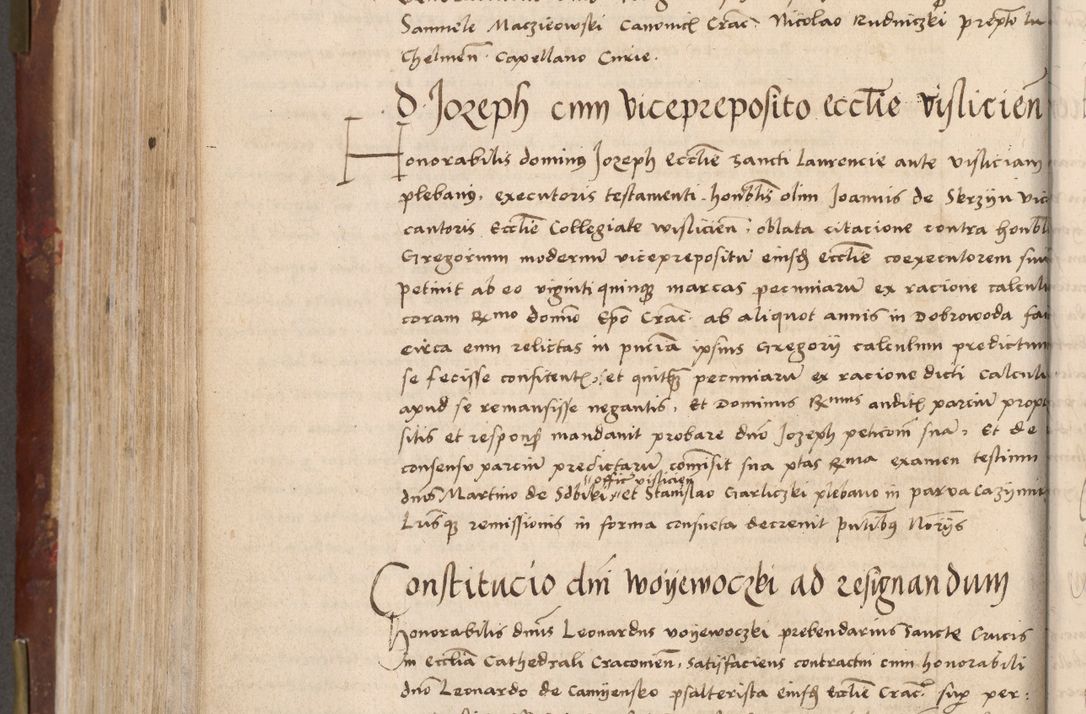 Samuele Maczieowski Canonico Crac. Nicolao Rudniczki prepto
Chelmen. Capellano Curie.
D. Jozeph cum vicepreposito ecclie vislicien
Honorabilis dominus Jozeph Ecclie Sancti Laurencie ante visliciam
plebanus, executoris testamenti honblis olim Joannis de Skrzyn vic
cantoris Ecclie Collegiate wislicien, oblata citacione contra honbl
Gregorium modernum viceprepositum eiusd ecclie coexecutorem suu
Petiuit ab eo viginti quinque marcas pecuniaru ex racione calculi
coram Rmo domino Epo Crac. ab aliquot annis in Dobrowoda fac
circa eum relictas in pncia ipsius Gregorij calculum predictum
se fecisse confitente, et quitque pecuniaru ex racione dicti calculi
apud se remansisse negantis, Et Dominus Rmus auditis parciu propo
sitis et respons mandauit probare dno Jozeph peticom sua, Et de
consensu parciu predictaru comisit sua ptas Rma examen testium
dnis Martino de Sdbiki offic vislicien et Stanislao Garliczki plebano in parva Cazymir
Lrisque remissionis in forma consueta decreuit Pntibus Norijs
Constitucio dni Woyewoczki ad resignandum
Honorabilis dnus Leonardus Voyewoczki prebendarius Sancte Crucis
In ecclia Cathedrali Cracouien, satisfaciens contractui cum honorabili
dno Leonardo de Camyensko psalterista eiusd ecclie Crac. sup per: